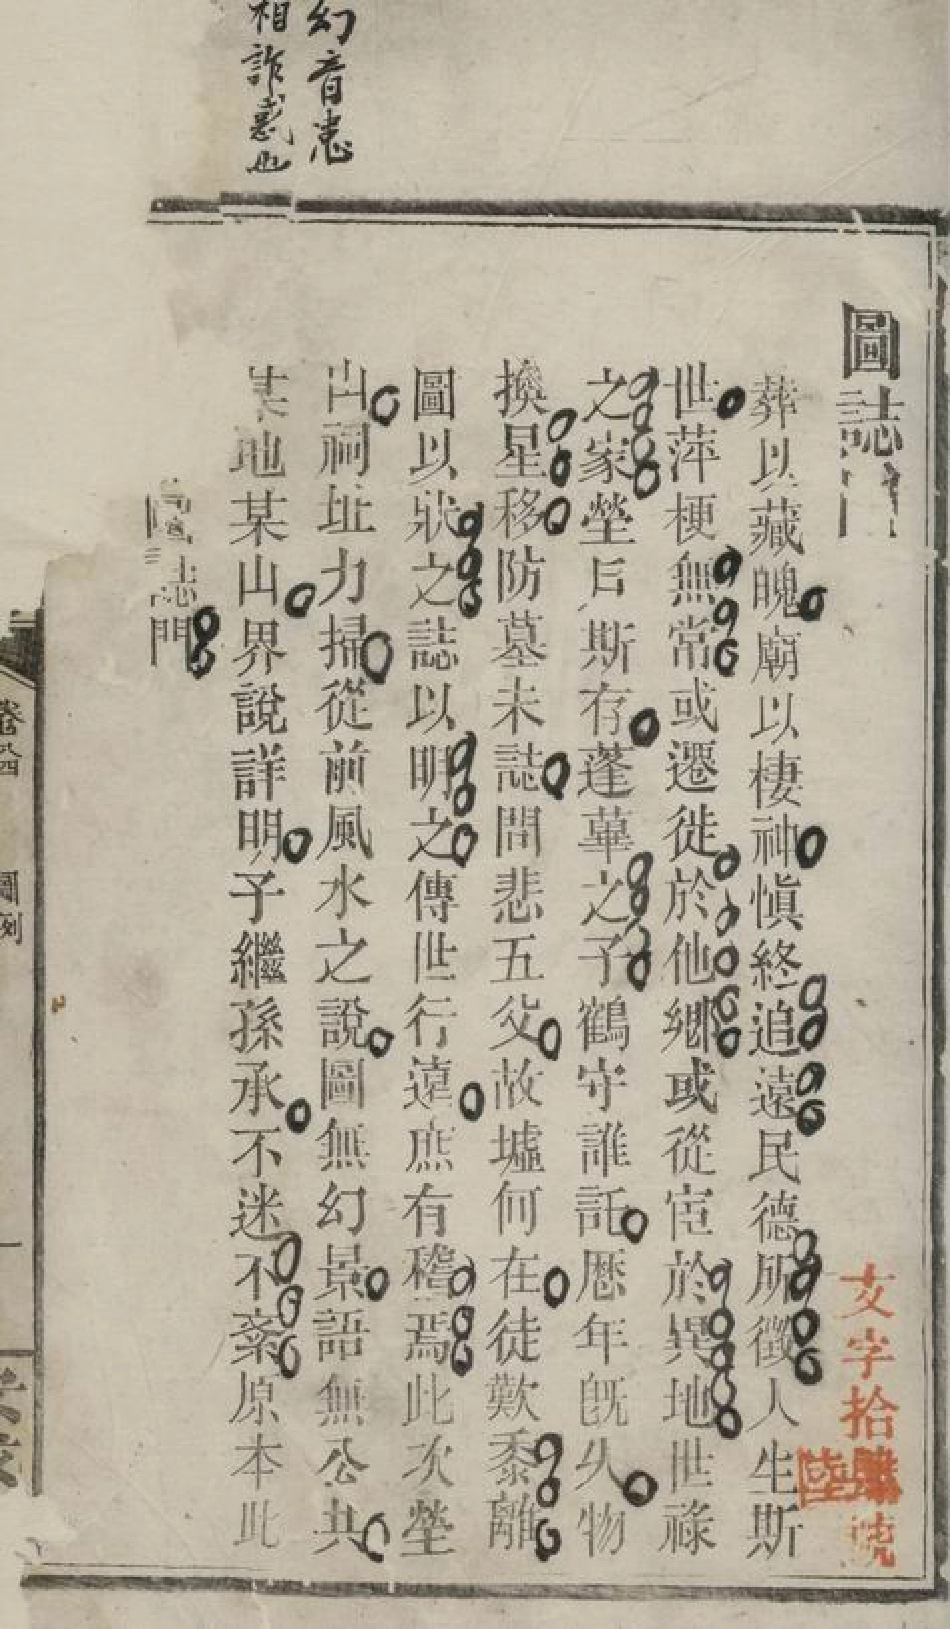 幻音患
相詐惑也
圖誌門
葬以藏魄廟以棲神愼終追遠民德所徵人生斯
世萍梗無常或遷徙於他鄉或從宦於異地世祿
之家塋戶斯存蓬蓽之子鶴守誰託歷年旣久物
換星移防墓未誌問悲五父故墟何在徒歎黍離
圖以狀之誌以明之傳世行遠庶有稽焉此次塋
山祠址力掃從前風水之說圖無幻景語無公共
某地某山界說詳明子繼孫承不迷不紊原本此
圖誌門
文字拾陸號
卷
四
圖例